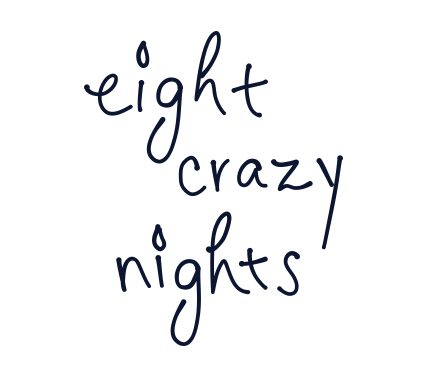 eight
crazy
nights